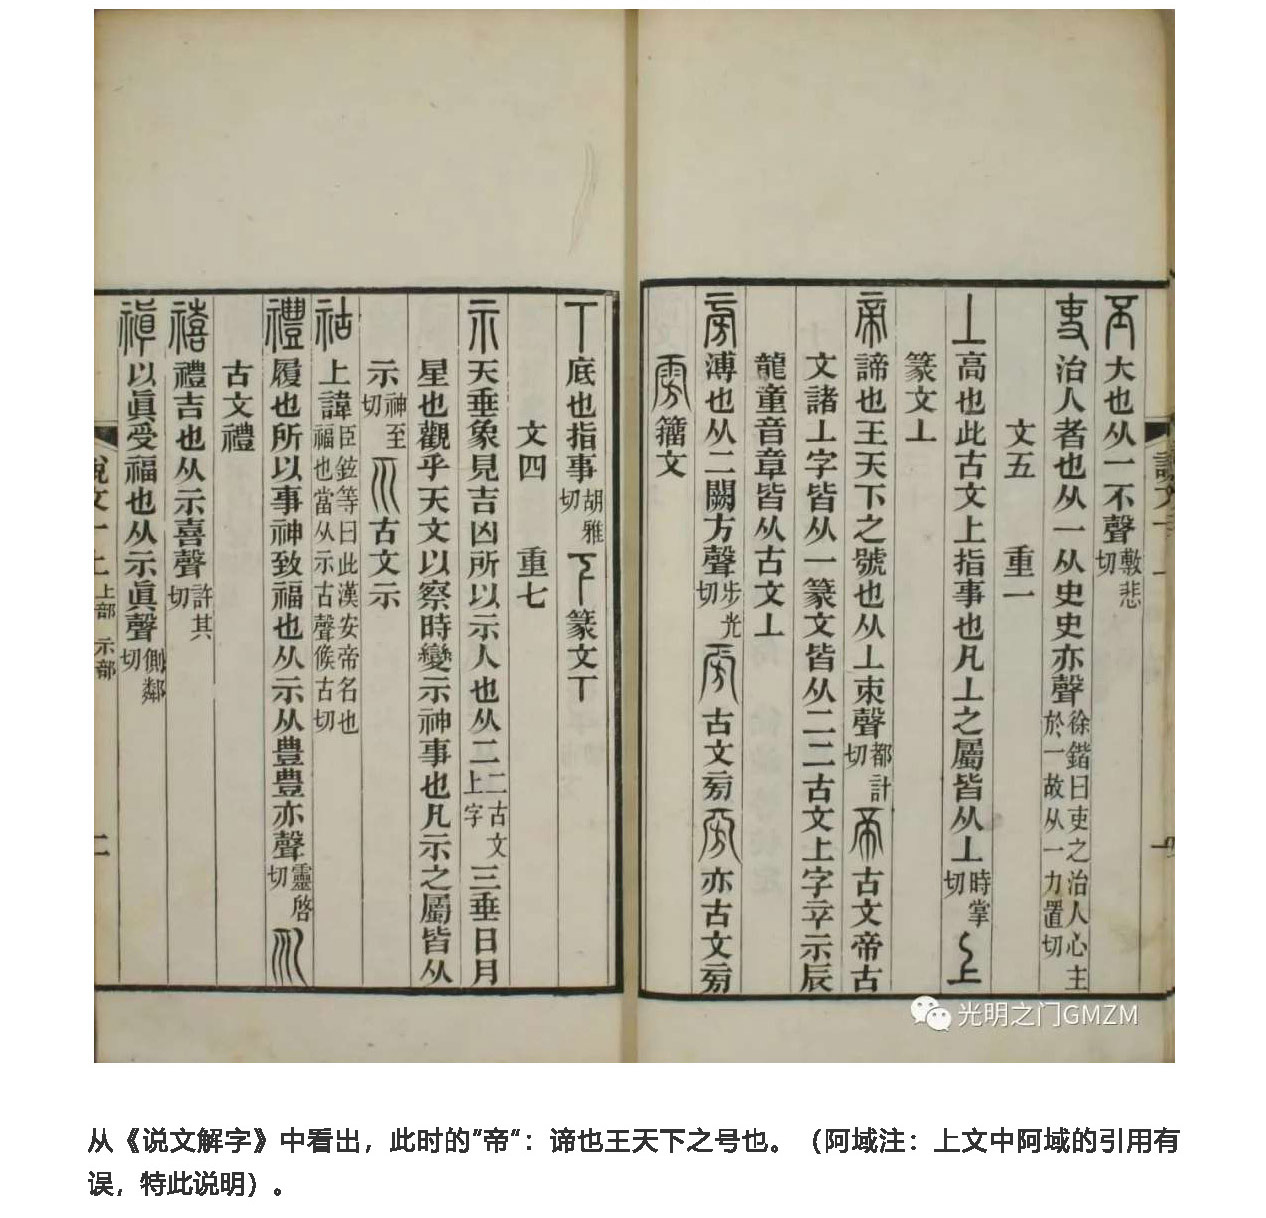 丕大也从一不聲敷悲切
吏治人者也从一从史史亦聲徐鍇曰吏之治人心主於一故从一力置切
文五 重一
丄高也此古文上指事也凡丄之屬皆从丄時掌切上
篆文丄
帝諦也王天下之號也从丄朿聲都計切帝古文帝古
文諸丄字皆从一篆文皆从二二古文上字䇂示辰
龍童音章皆从古文丄
旁溥也从二闕方聲步光切旁古文㫄旁亦古文㫄
雱籒文
丅底也指事胡雅切下篆文丅
文四 重七
示天垂象見吉凶所以示人也从二二古文上字三垂日月
星也觀乎天文以察時變示神事也凡示之屬皆从
示神至切古文示
祜上諱臣鉉等曰此漢安帝名也福也當从示古聲候古切
禮履也所以事神致福也从示从豊豊亦聲靈啓切
古文禮
禧禮吉也从示喜聲許其切
禛以眞受福也从示眞聲側鄰切
說文一上 上部 示部 二
光明之门GMZM
从《说文解字》中看出，此时的"帝"：谛也王天下之号也。（阿域注：上文中阿域的引用有
误，特此说明）。